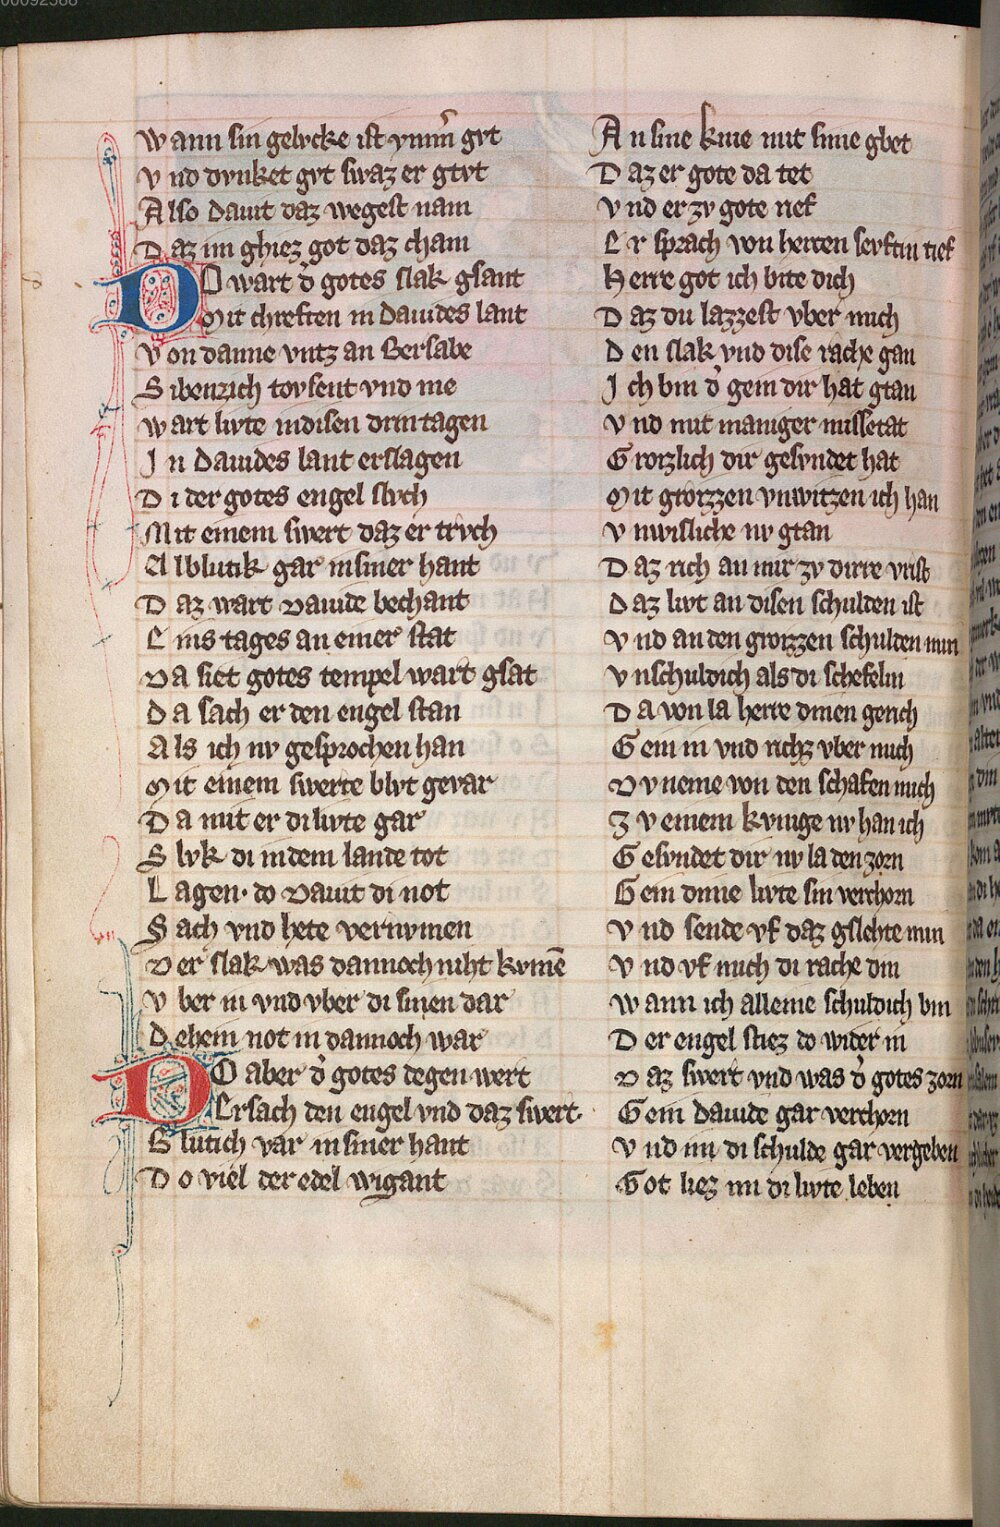 00092588
Wann sin gelvcke ist ymm̄ gvt
Vnd dvnket gvt swaz er gtvt
Also Dauit daz wegest nam
Daz im ghiez got daz cham
DO wart d̓ gotes slak gsant
Mit chreften in Dauides lant
Von danne vntz an Bersabe
Sibenzich tovsent vnd me
Wart livte in disen drin tagen
In Dauides lant erslagen
Di der gotes engel slvch
Mit einem swert daz er trvch
Alblutik gar in siner hant
Daz wart Dauide bechant
Eins tages an einer stat
Da siet gotes tempel wart gsat
Da sach er den engel stan
Als ich nv gesprochen han
Mit einem swerte blvt gevar
Da mit er di livte gar
Slvk di in dem lande tot
Lagen· do Dauit di not
Sach vnd hete vernvmen
Der slak was dannoch niht kvmē
Vber in vnd vber di sinen dar
Dehein not in dannoch war
DO aber d̓ gotes degen wert
Ersach den engel vnd daz swert·
Blutich var in siner hant
Do viel der edel wigant
An sine knie mit sinne gbet
Daz er gote da tet
Vnd er zv gote rief
Er sprach von herzen sevften tief
Herre got ich bite dich
Daz du lazzest vber mich
Den slak vnd dise rache gan
Ich bin d̓ gein dir hat gtan
Vnd mit maniger missetat
Grozlich dir gesvndet hat
Mit grozzen vnwitzen ich han
Vnwisliche nv gtan
Daz rich an mir zv dirre vrist
Daz livt an disen schulden ist
Vnd an den grozzen schulden min
Vnschuldich als di schefelin
Da von la herre dinen gerich
Gein in vnd richz vber mich
Dv neme von den schafen mich
Zv einem kvnige nv han ich
Gesvndet dir nv la den zorn
Gein dine livte sin verchorn
Vnd sende vf daz gslehte min
Vnd vf mich di rache din
Wann ich alleine schuldich bin
Der engel stiez do wider in
Daz swert vnd was d̓ gotes zorn
Gein Dauide gar verchorn
Vnd im di schulde gar vergeben
Got liez im di livte leben